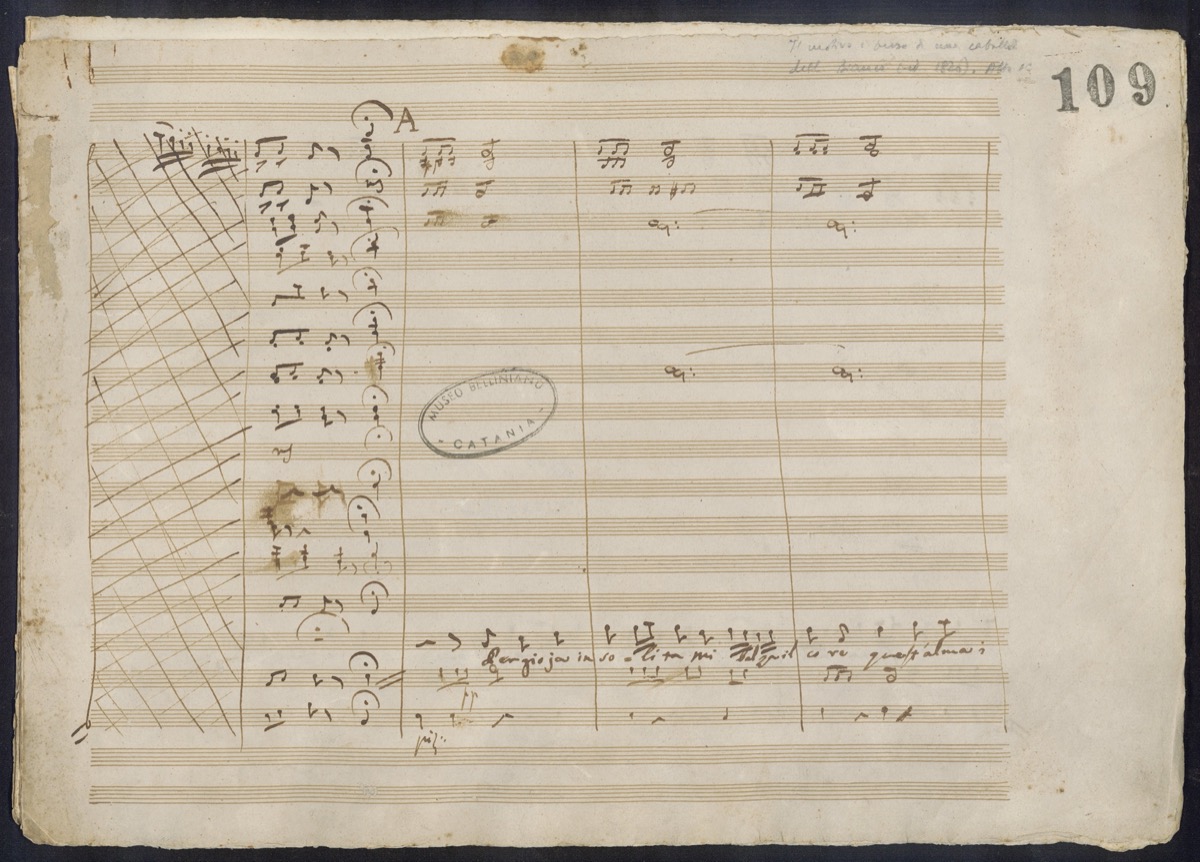 Il motivo è preso di una cabaletta
dell' Bianca (ed. 1826).
109
A
MUSEO BELLINIANO
CATANIA
Per gioja in so-li-ta mi balza il core quest'alma i
pp
piz: